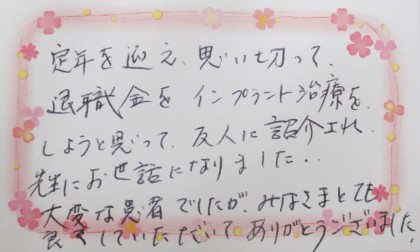 定年を迎え、思い切って、
退職金を インプラント治療を、
しようと思って、友人に紹介され、
先生にお世話になりました..
大変な患者でしたが、みなさまとても
良くしていただいて ありがとうございました